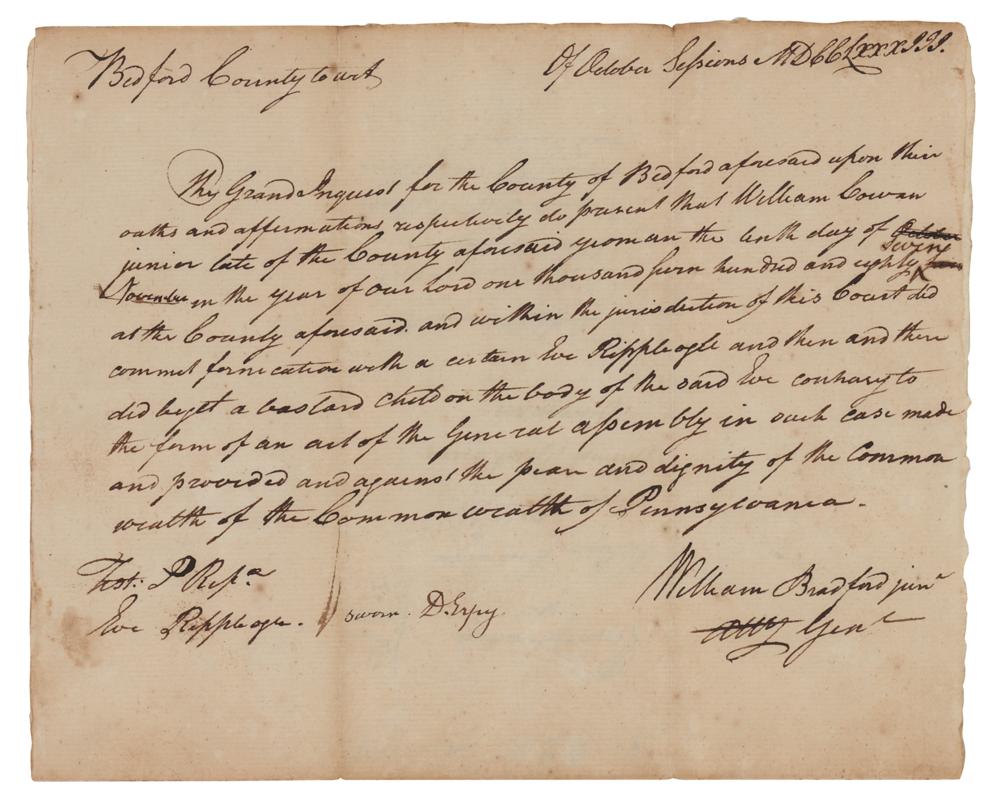 Bedford County Court
Of October Sessions MDCCLXXXIII.
The Grand Inquest for the County of Bedford aforesaid upon their
oaths and affirmations respectively do present that William Cowan
junior late of the County aforesaid yeoman the tenth day of October
November in the year of our Lord one thousand seven hundred and eighty
at the County aforesaid and within the jurisdiction of this Court did
commit fornication with a certain Eve Rippleogle and then and there
did beget a bastard child on the body of the said Eve contrary to
the form of an act of the General assembly in such case made
and provided and against the peace and dignity of the Common
wealth of the Common wealth of Pennsylvania.
Test: P Resa
Eve Rippleogle. sworn. D. Espy
William Bradford junr
Atty Genl